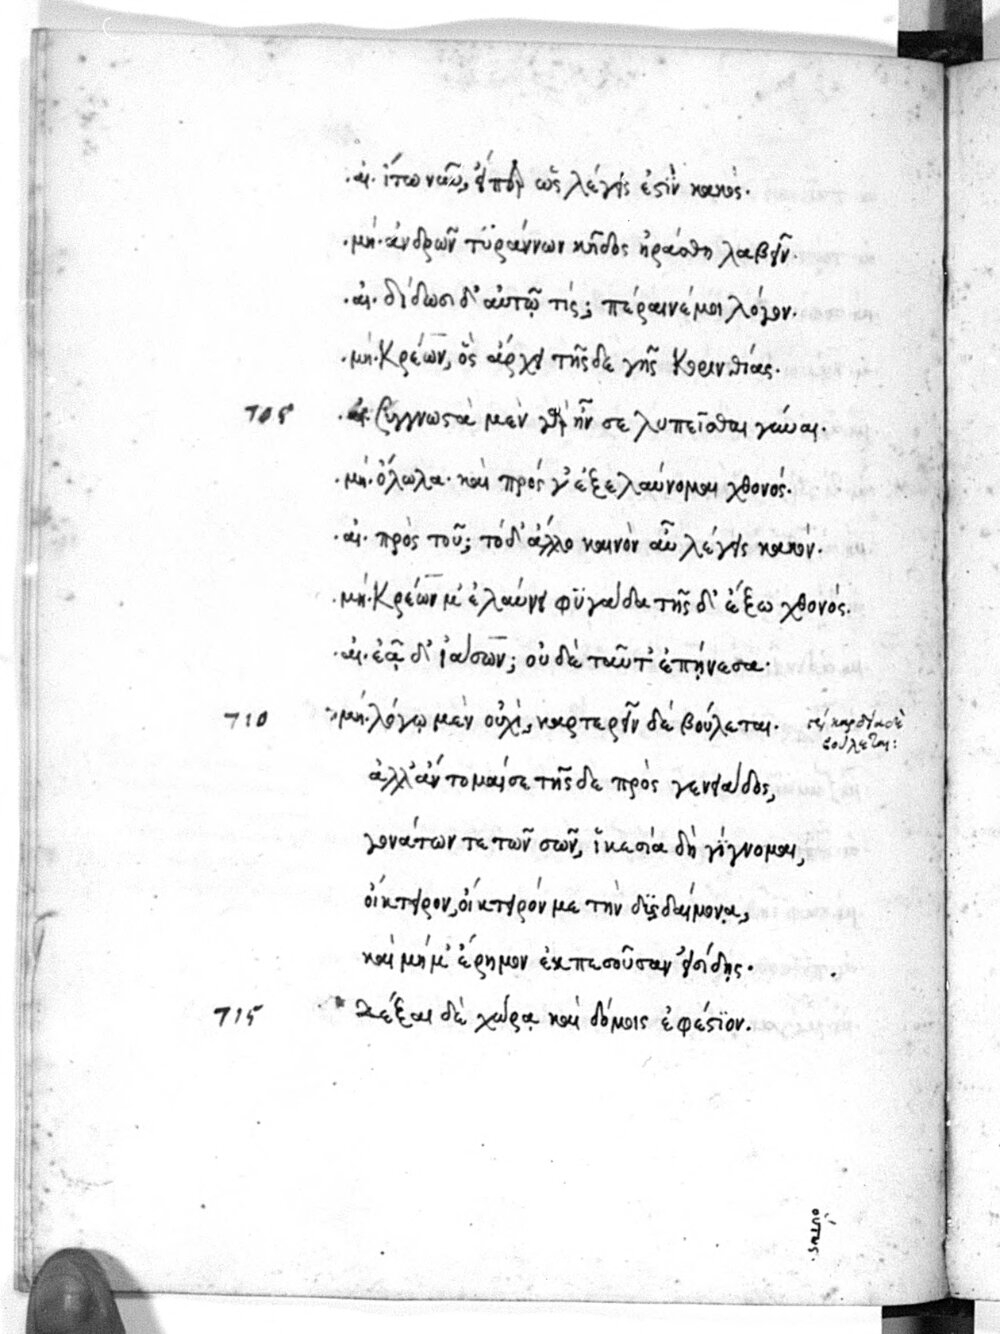 ·αι· ἴτω νῦν, εἴπερ ὡς λέγεις ἐστὶν κακός·
·μη· ἀνδρῶν τυράννων κῆδος ἠράσθη λαβεῖν·
·αι· δίδωσι δ' αὐτῷ τίς; πέραινέ μοι λόγον·
·μη· Κρέων, ὃς ἄρχει τῆσδε γῆς Κορινθίας·
705 ·αι· ξυγγνωστὰ μὲν γὰρ ἦν σε λυπεῖσθαι γύναι·
·μη· ὄλωλα· καὶ πρός γ' ἐξελαύνομαι χθονός·
·αι· πρὸς τοῦ; τόδ' ἄλλο καινὸν αὖ λέγεις κακόν·
·μη· Κρέων μ' ἐλαύνει φυγάδα τῆσδ' ἔξω χθονός·
·αι· ἐᾷ δ' ἰάσων; οὐδὲ ταῦτ' ἐπῄνεσα·
710 ·μη· λόγῳ μὲν οὐχί, καρτερεῖν δὲ βούλεται· καρδία δὲ
βούλεται:
ἀλλ' ἄντομαί σε τῆσδε πρὸς γενειάδος,
γονάτων τε τῶν σῶν, ἱκεσία δὴ γίγνομαι,
οἴκτειρον, οἴκτειρόν με τὴν δυσδαίμονα,
καὶ μή μ' ἔρημον ἐκπεσοῦσαν εἰσίδῃς·
715 Δέξαι δὲ χώρᾳ καὶ δόμοις ἐφέστιον.
οὕτως·